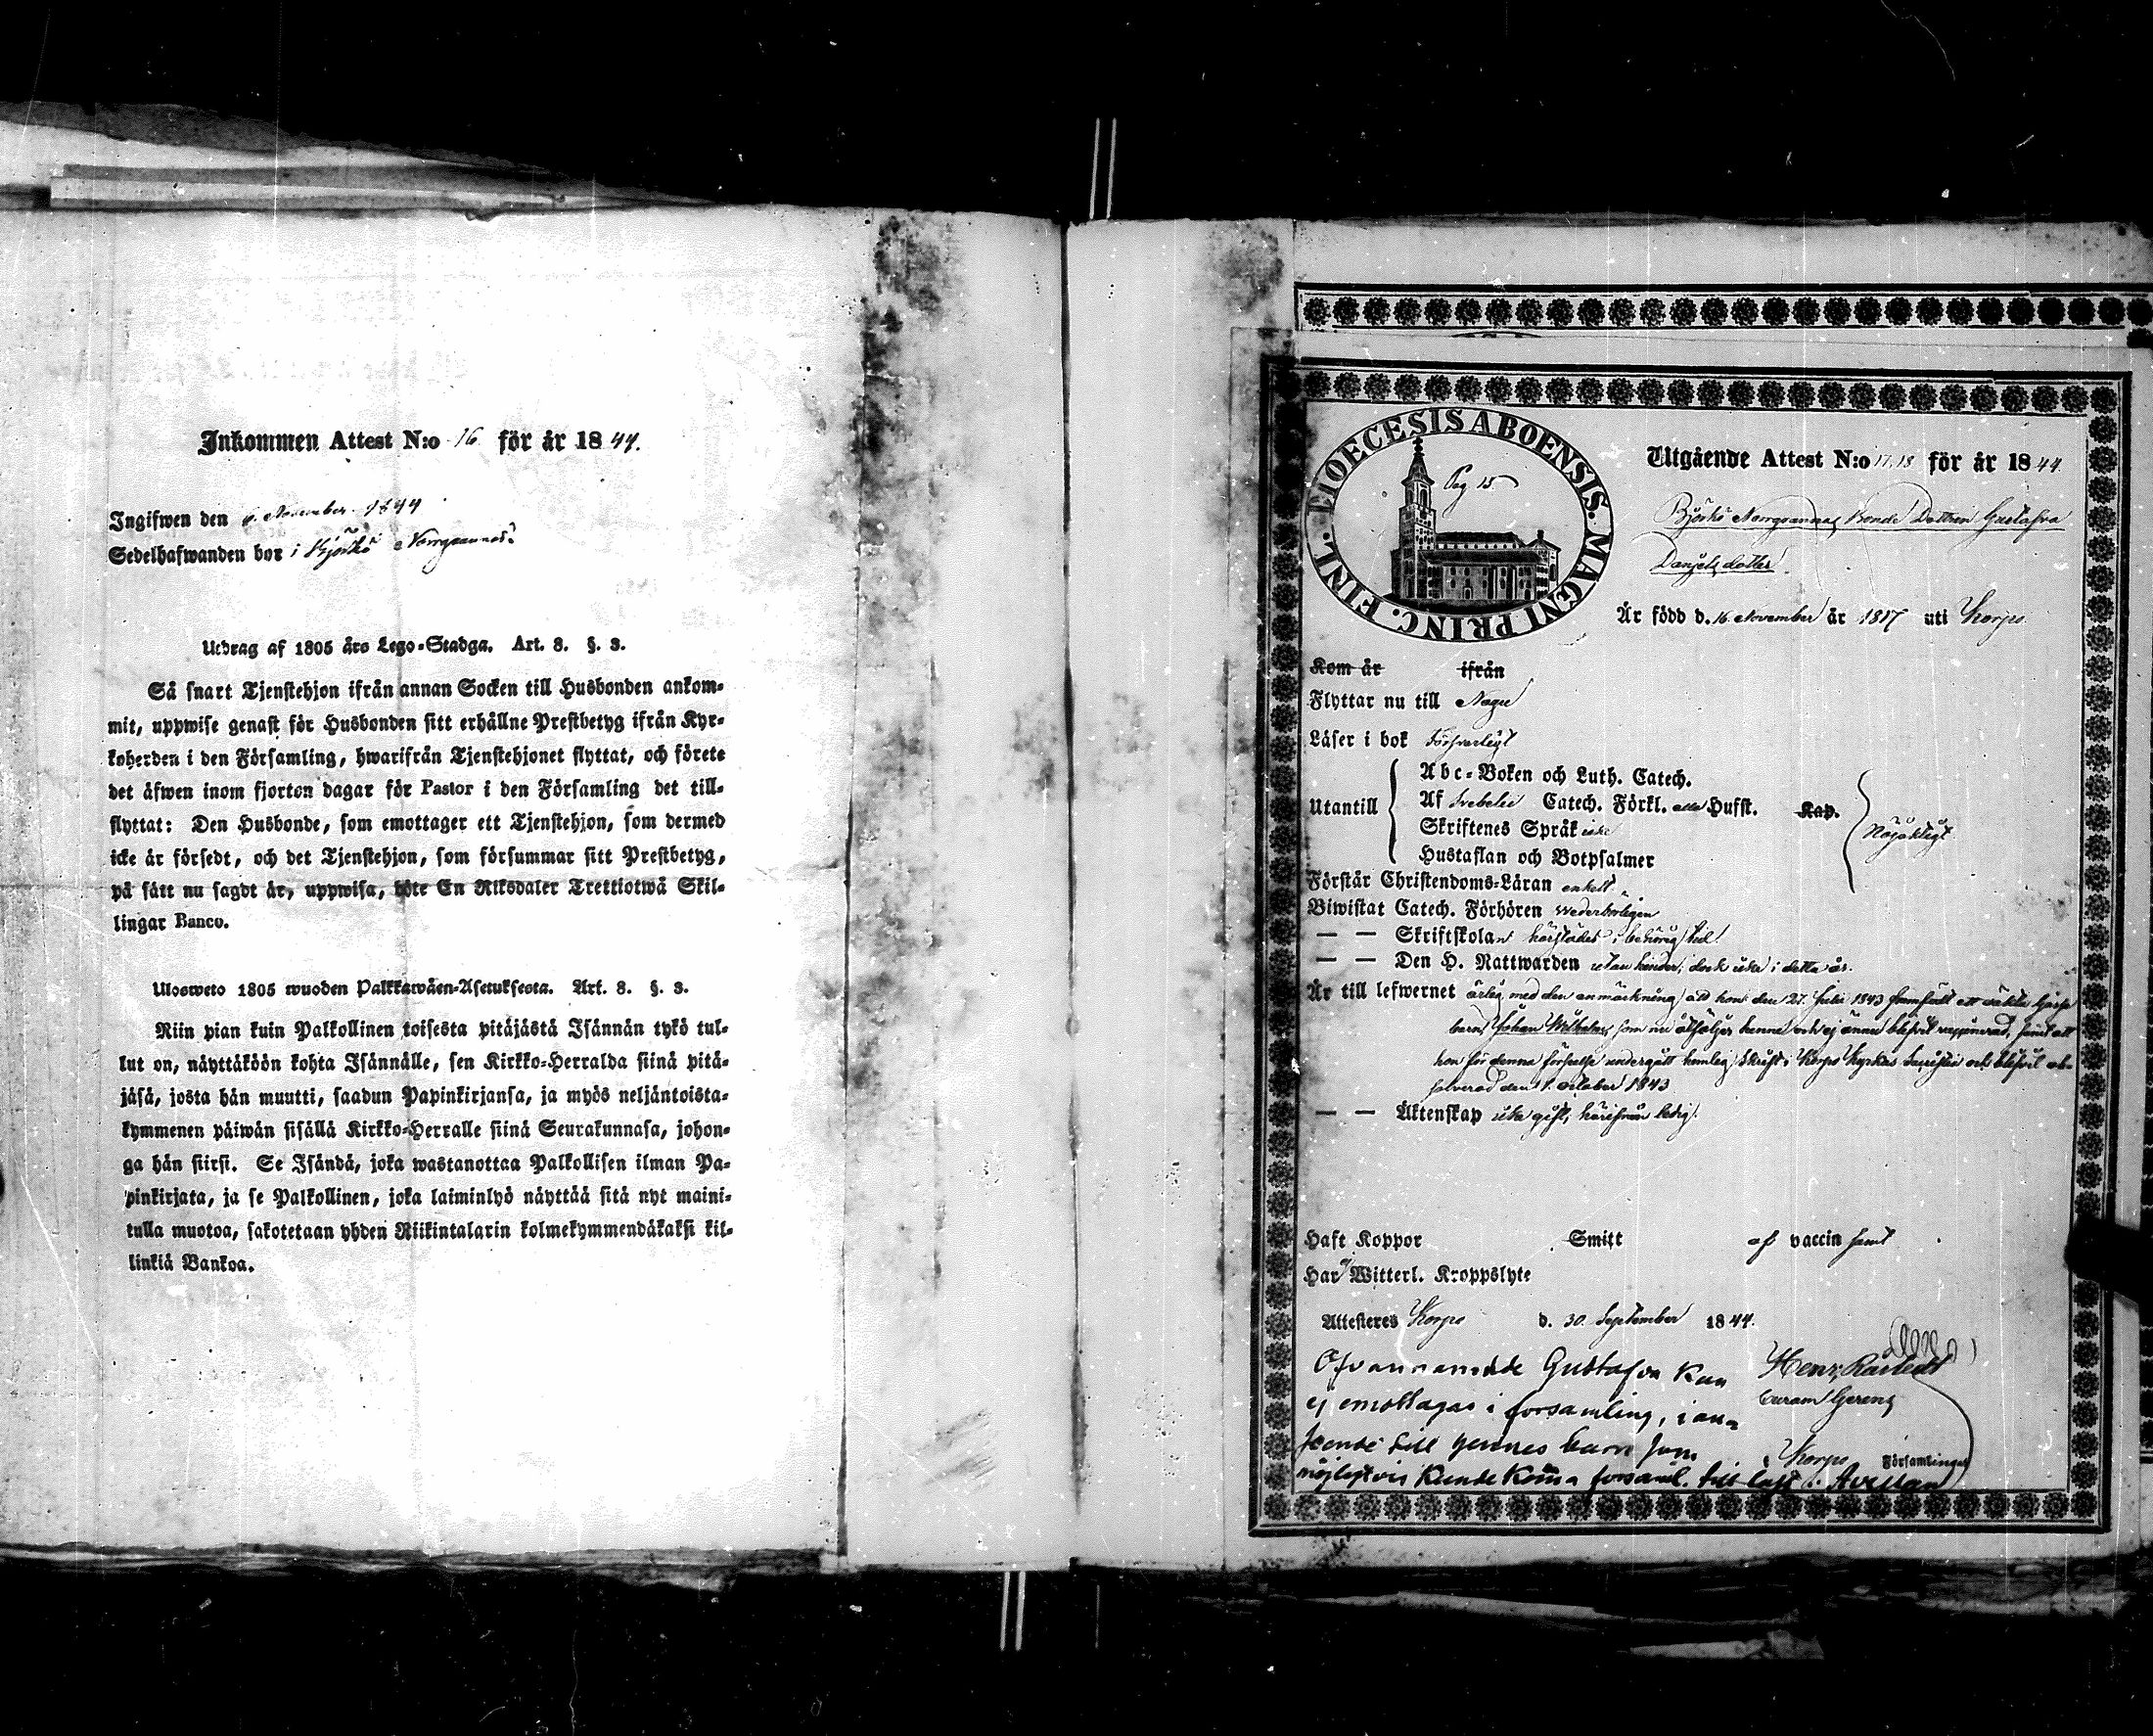 Inkommen Attest N:o 16 för år 1844.
Ingifwen den 6. November 1844
Sedelhafwanden bor i Björkö Norrgrannas
Utdrag af 1805 års Lego-Stadga. Art. 8. §. 3.
Så snart Tjenstehjon ifrån annan Socken till Husbonden ankom-
mit, uppwise genast för Husbonden sitt erhållne Prestbetyg ifrån Kyr-
koherden i den Församling, hwarifrån Tjenstehjonet flyttat, och förete
det äfwen inom fjorton dagar för Pastor i den Församling det till-
flyttat: Den Husbonde, som emottager ett Tjenstehjon, som dermed
icke är försedt, och det Tjenstehjon, som försummar sitt Prestbetyg,
på sätt nu sagdt är, uppwisa, böte En Riksdaler Trettiotwå Skil-
lingar Banco.
Ulosweto 1805 wuoden Palkkawäen-Asetuksesta. Art. 8. §. 3.
Niin pian kuin Palkollinen toisesta pitäjästä Isännän tykö tul-
lut on, näyttäköön kohta Isännälle, sen Kirkko-Herralda siinä pitä-
jäsä, josta hän muutti, saadun Papinkirjansa, ja myös neljäntoista-
kymmenen päiwän sisällä Kirkko-Herralle siinä Seurakunnasa, johon-
ga hän siirsi. Se Isändä, joka wastanottaa Palkollisen ilman Pa-
pinkirjata, ja se Palkollinen, joka laiminlyö näyttää sitä nyt maini-
tulla muotoa, sakotetaan yhden Riikintalarin kolmekymmendäkaksi kil-
linkiä Bankoa.
DIOECESIS ABOENSIS. MAGNI PRINC. FINL.
Pag 15.
Utgående Attest N:o 17, 18 för år 1844.
Björkö Norrgrannas Bonde Dottren Gustafva
Danjels dotter.
Är född d. 16 November år 1817 uti Korpo.
Kom år ifrån
Flyttar nu till Nagu
Läser i bok försvarligt
Abc-Boken och Luth. Catech.
Utantill Af Svebelii Catech. Förkl. eller Hufst. Kap.
Skriftenes Språk icke
Nöjaktigt
Hustaflan och Botpsalmer
Förstår Christendoms-Läran enkelt
Biwistat Catech. Förhören wederbörligen
— — Skriftskolan härstädes i behörig tid
— — Den H. Nattwarden utan hinder, dock icke i detta år.
Är till lefwernet ärlig med den anmärkning, att hon den 27. Julii 1843 framfödt ett oäkta Gosse
barn, Johan Wilhelm, som nu åtföljer henne och ej ännu blifvit vaccinerad, samt att
hon för denna förseelse undergått hemlig skrift i Korpo Kyrkas Sacristia och blifvit ab-
solverad den 1. October 1843
— — Äktenskap icke gift, härifrån ledig.
Haft Koppor Smitt af vaccin haft
Har ej Witterl. Kroppslyte
Attesteres Korpo d. 30 September 1844.
Ofvannämnde Gustafva kan
ej emottagas i församling, i an-
seende till hennes barn som
möjligtvis kunde komma församl. till last.
Henr.
Curam Gerens
i Korpo Församlingar